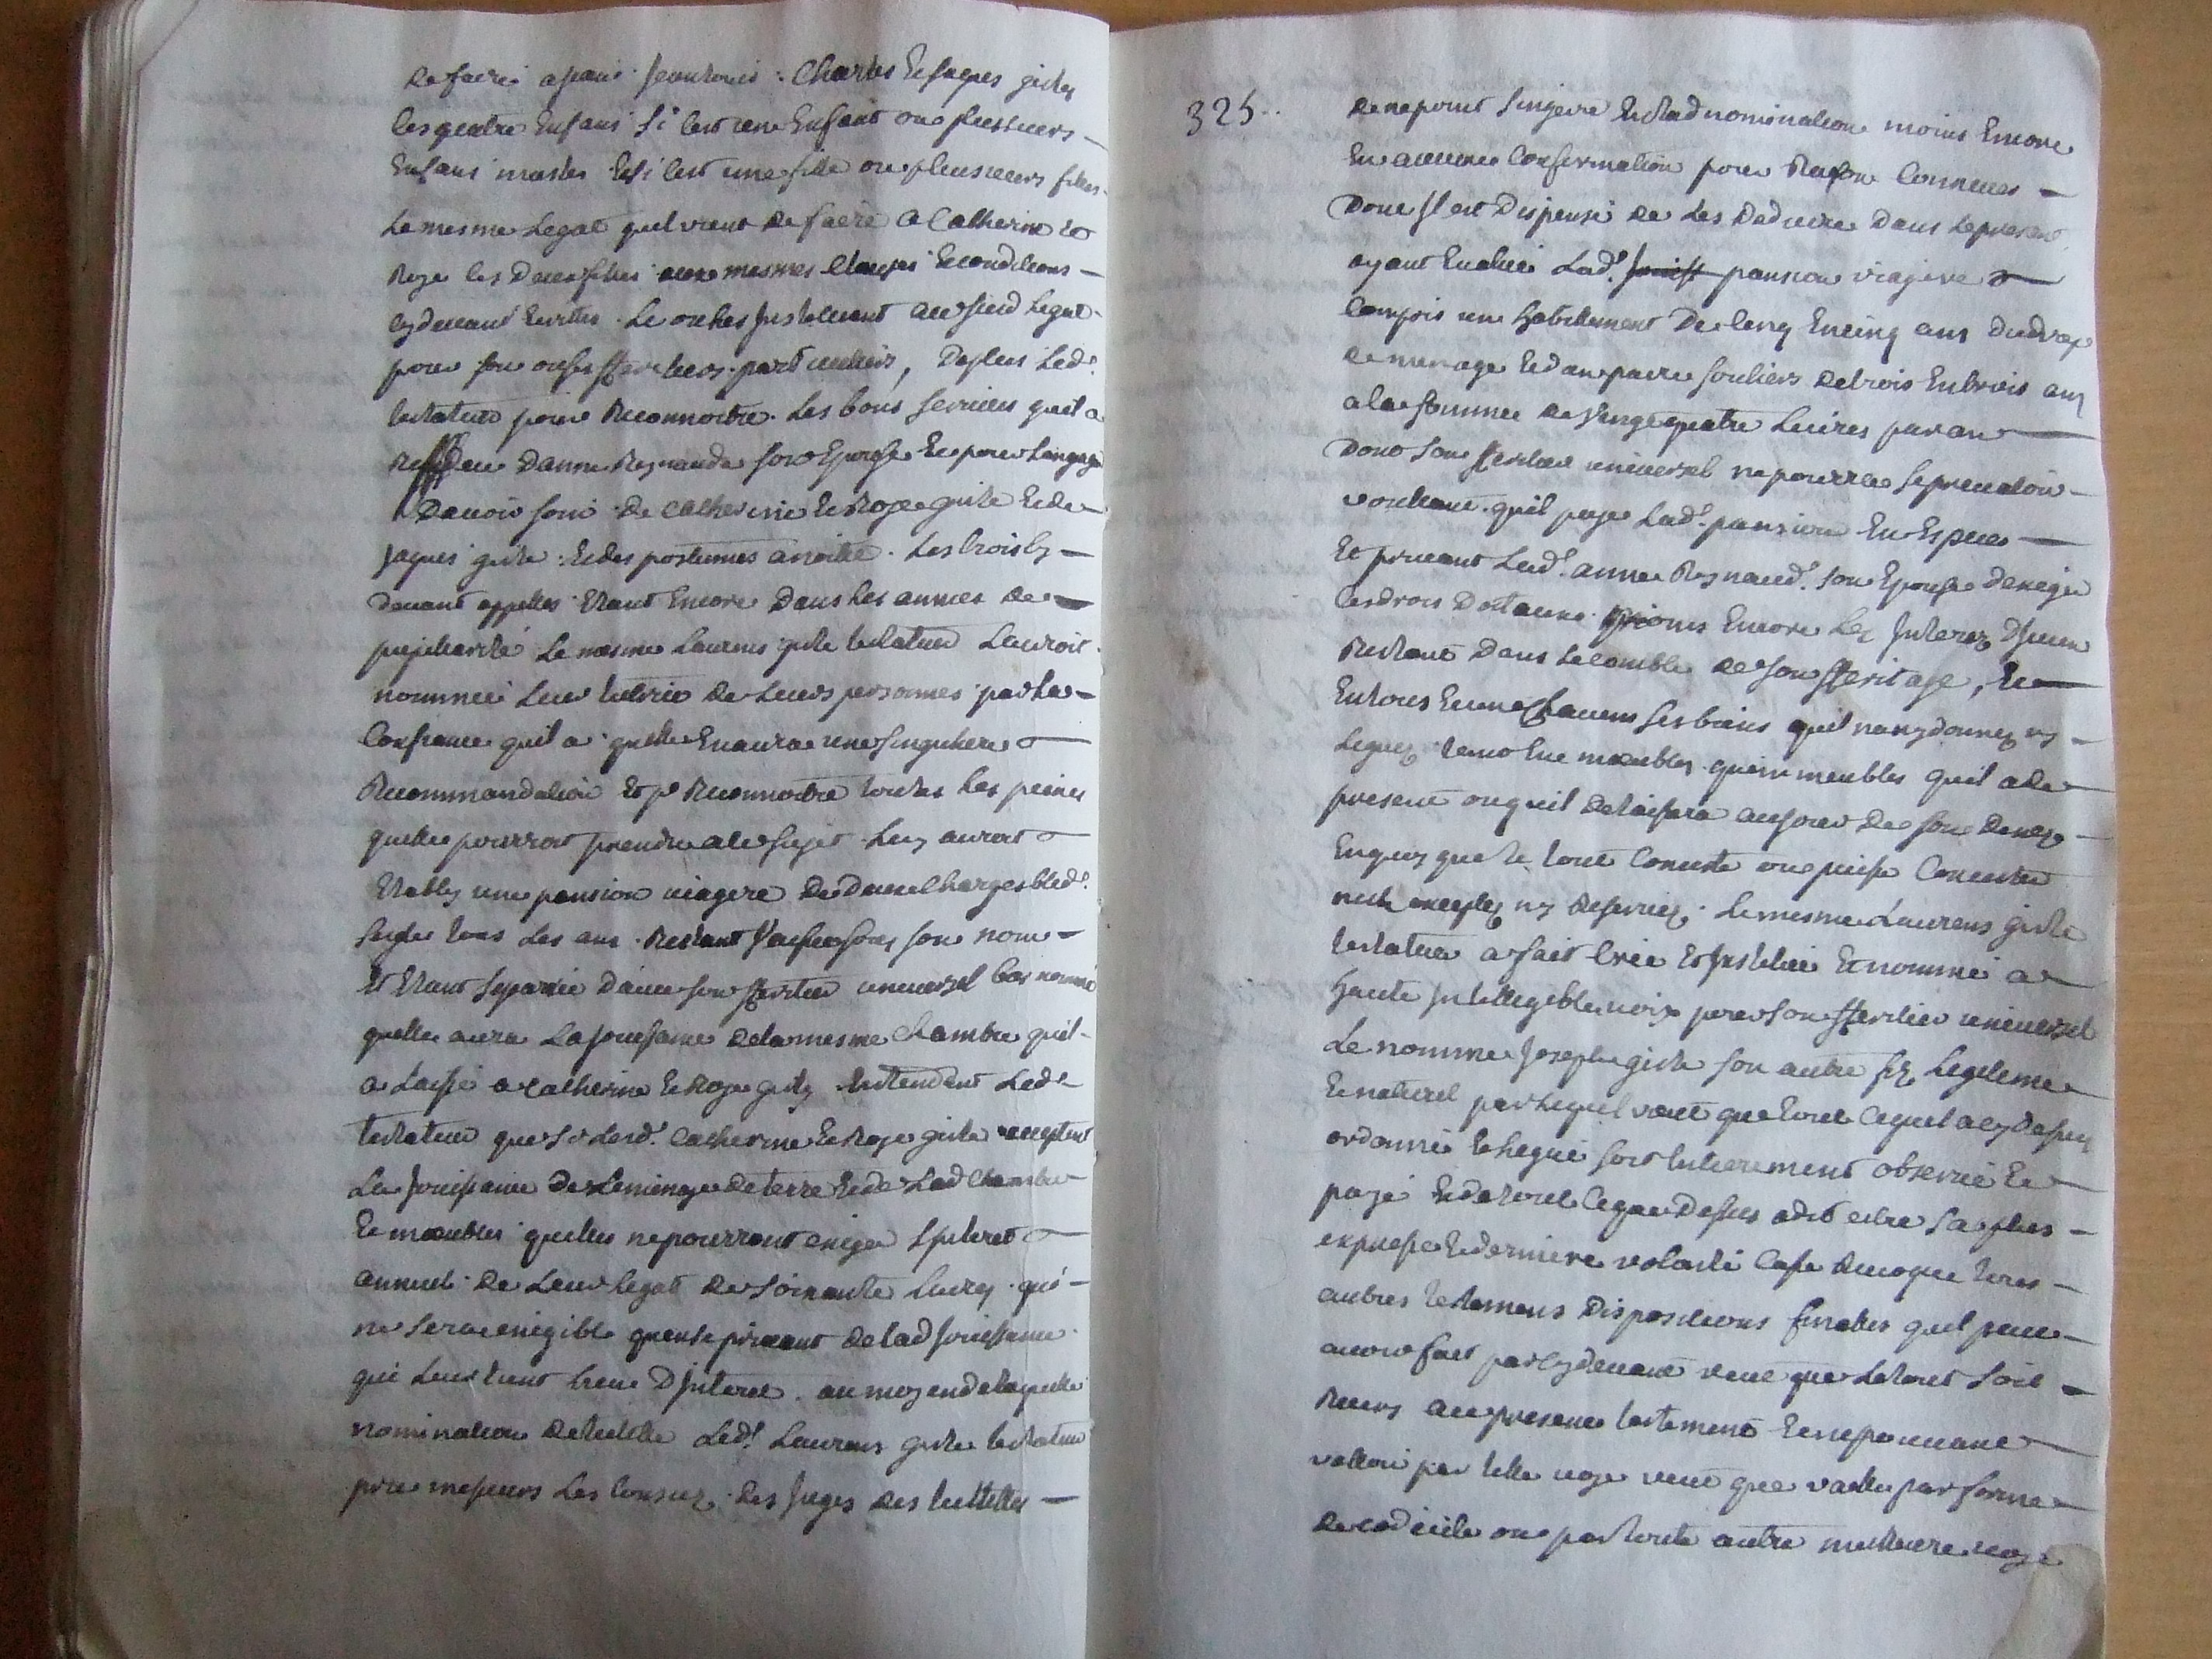 de faire a pani jeantouis Charles Et jaques giste
les quatre Enfans si lest une Enfant ou plussieurs
Enfans masles Et si lest une fille ou plusieurs filles
Le mesme Legat quil vient de faire a Catherine Et
Roze les deux filles aux mesmes Clauzes Et conditions
cy devant Ecrites Le ou les Instituant audit Legat
pour son ou ses Heritiers particuliers, de plus Led.
testateur pour Reconnoitre Les bons services quil a
Reçeu danne Reynaude son Epouse Et pour Langage
Davoir soin de Catherine Et Roze giste Et de
jaques giste Et des postumes a naitre Les trois cy
devant appellés Etant Encore dans les années de
pupilarité Le mesme Laurens giste testateur Lauroit
nommée Leur tutrice de Leurs personnes par la
Confiance quil a quelle En aura une singuliere
Recommandation Et pr Reconnoitre toutes les peines
quelle pourroit prendre a le sujet Luy auroit
Etably une pension viagere de deux Charges bled
seigle tous les ans Restant sous son nom
Et Etant separée davec son Heritier universel bas nommé
quelle aura La jouissance de la mesme Chambre quil
a Laissé a Catherine Et Roze giste Entendant Led.
testateur que si Lesd. Catherine Et Roze giste acceptent
La jouissance de Leminage de terre Et de Lad Chambre
Et meubles quelles ne pourront exiger Linteret
annuel de Leur legat de soixante Livres qui
ne sera exigible quen se privant de lad jouissance
qui Leur tient Lieu Dinteret au moyen de laquelle
nomination de tutelle Led. Laurens giste testateur
prie messieurs Les Consuez des juges des tuttelles
325..
de ne point singerer En Lad nomination moins Encore
En aucune Confirmation pour Raison Connues
Dont Il est Dispensé de Les Deduire Dans Le present
ayant Etablie Lad. pansion viagere
Compris un habillement De cinq En cinq ans du drap
de menage Et dune paire souliers de trois En trois ans
a la somme de vingt quatre Livres par an
Dont son Heritier universel ne pourra se prevaloir
voullant quil paye Lad. pansion En Espece
Et privant Lad. anne Reynaud. son Epouse dexiger
les drois Dottaux moins Encore Les Interez Diceux
Restant Dans Le comble de son Heritage, Et
En tous Et un Chacuns ses biens quil na ny donnez ny
Leguez tant En meubles quimmeubles quil a de
present ou quil delaissera au jour de son decez
En quoy que le tout Consiste ou puisse Consister
rien exceptez ny Reservez Le mesme Laurens giste
testateur a fait Crée Et Institué Et nommé a
haute Intelligible voix pour son Heritier universel
Le nommé Joseph giste son autre fiz Legitime
Et naturel par Lequel veut que tout Cequil a cy dessus
ordonné Et Legué soit Entierement observé Et
payé Et de tout Ceque Dessus a dit estre sa plus
expresse Et derniere volonté Casse Revoque tous
autres testamens Dispositions finales quil peut
avoir fait par cy devant veut que Le tout soit
Reduis au present testement Et ne pouvant
valloir par telle voye veut que vaille par forme
de codicile ou par toute autre meilleure voye